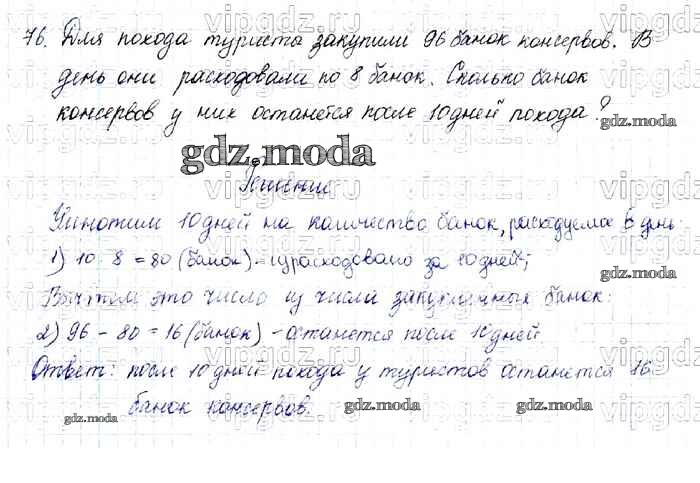 76. Для похода туристы закупили 96 банок консервов. В
день они расходовали по 8 банок. Сколько банок
консервов у них останется после 10 дней похода?
gdz.moda
gdz.moda
Решение
Умножим 10 дней на количество банок, расходуемое в день:
1) 10 · 8 = 80 (банок) - израсходовано за 10 дней;
gdz.moda
Вычтем это число из числа закупленных банок:
2) 96 - 80 = 16 (банок) - останется после 10 дней
Ответ: после 10 дней похода у туристов останется 16
банок консервов.
gdz.moda
gdz.moda
gdz.moda